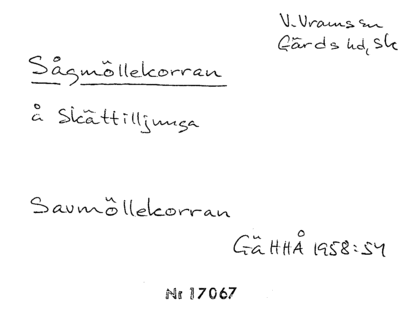 V. Vram sn
Gärds hd, Sk
Sågmöllekorran
å Skättilljunga
Savmöllekorran
GäHHÅ 1958:54
Nr 17067